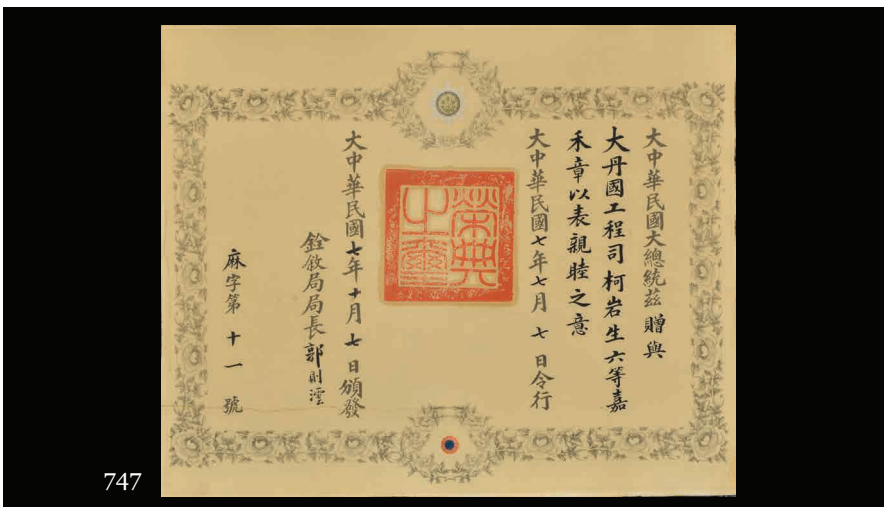 大中華民國大總統茲贈與
大丹國工程司柯岩生六等嘉
禾章以表親睦之意
大中華民國七年七月七日令行
榮典之璽
大中華民國七年十月七日頒發
銓敘局局長郭則澐
麻字第十一號
747